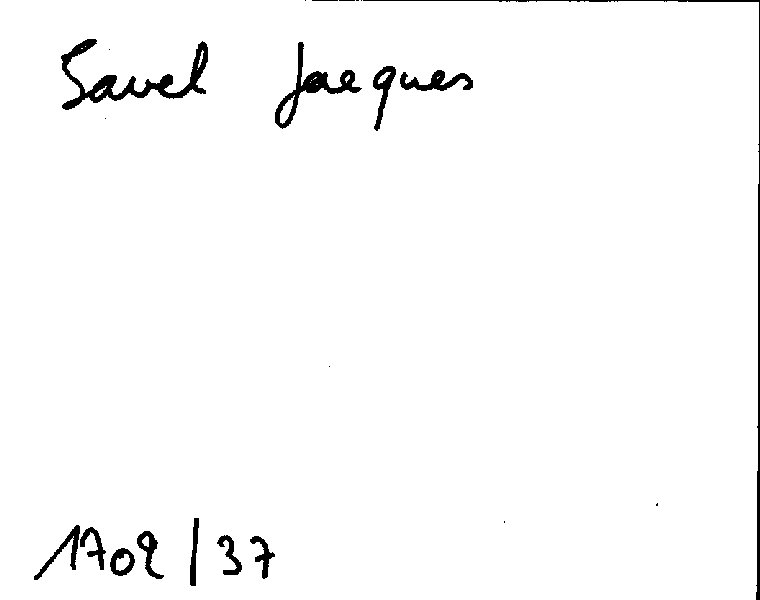 Savel Jacques
1702/37